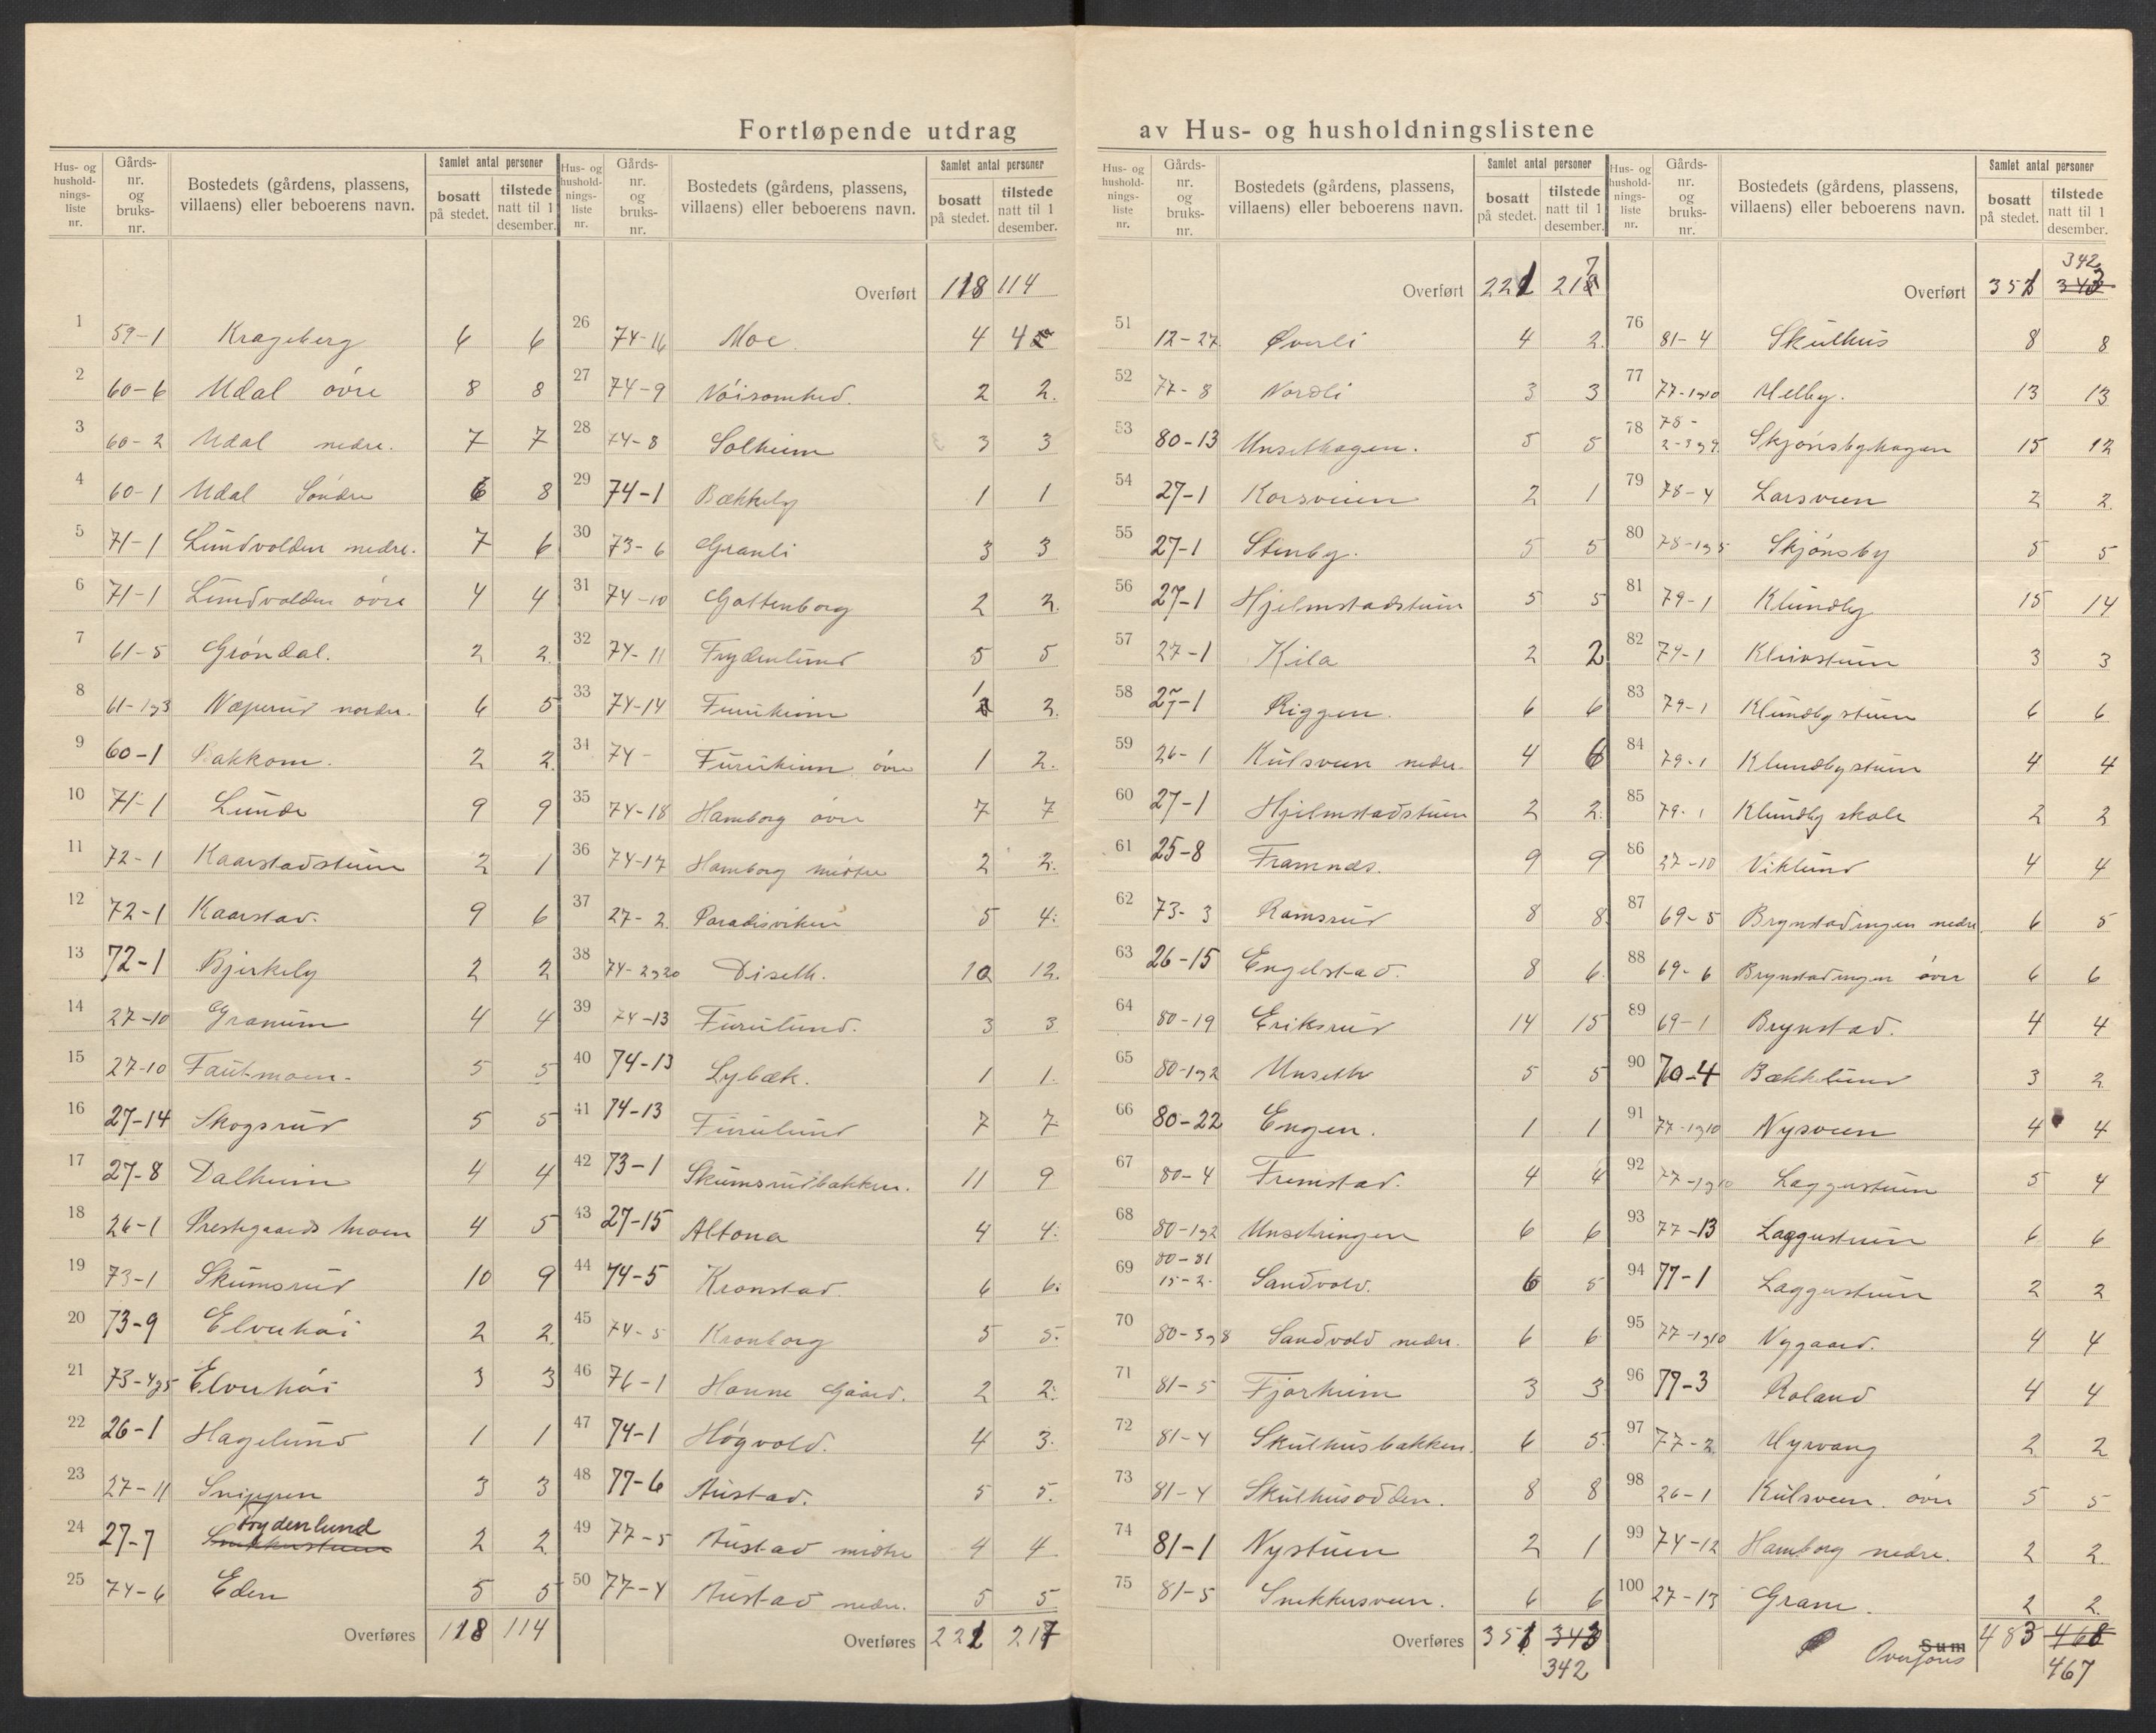 Fortløpende utdrag av Hus- og husholdningslistene
Hus- og husholdnings- liste nr. | Gårds- nr. og bruks- nr. | Bostedets (gårdens, plassens, villaens) eller beboerens navn. | Samlet antal personer | bosatt på stedet. | tilstede natt til 1 desember.
1 59-1 Krageberg 6 6
2 60-6 Udal övre 8 8
3 60-2 Udal nedre. 7 7
4 60-1 Udal Söndre 6 8
5 71-1 Lundvolden nedre. 7 6
6 71-1 Lundvolden övre 4 4
7 61-5 Gröndal. 2 2
8 61-1og3 Næperud nordre. 6 5
9 60-1 Bakkom. 2 2
10 71-1 Lunde 9 9
11 72-1 Kaarstadstuen 2 1
12 72-1 Kaarstad. 9 6
13 72-1 Bjerkely 2 2
14 27-10 Granum 4 4
15 27-10 Fautmoen. 5 5
16 27-14 Skogsrud 5 5
17 27-8 Dalheim 4 4
18 26-1 Prestegaards moen 4 5
19 73-1 Skumsrud 10 9
20 73-9 Elvehöi 2 2
21 73-4og5 Elvehöi 3 3
22 26-1 Hagelund 1 1
23 27-11 Snippen 3 3
24 27-7 Frydenlund 2 2
25 74-6 Eden 5 5
Overføres 118 114
Hus- og husholdnings- liste nr. | Gårds- nr. og bruks- nr. | Bostedets (gårdens, plassens, villaens) eller beboerens navn. | Samlet antal personer | bosatt på stedet. | tilstede natt til 1 desember.
Overført 118 114
26 74-16 Moe. 4 4
27 74-9 Nöisomhed. 2 2.
28 74-8 Solheim 3 3
29 74-1 Bækkely 1 1
30 73-6 Granli 3 3
31 74-10 Gottenborg 2 2.
32 74-11 Frydenlund 5 5
33 74-14 Furuheim 1 2.
34 74- Furuheim övre 1 2.
35 74-18 Hamborg övre 7 7
36 74-17 Hamborg midtre 2 2.
37 27-2 Paradisviken 5 4.
38 74-2og20 Diseth. 10 12.
39 74-13 Furulund. 3 3
40 74-13 Lybæk. 1 1.
41 74-13 Furulund 7 7
42 73-1 Skumsrudbakken. 11 9
43 27-15 Altona 4 4.
44 74-5 Kronstad. 6 6.
45 74-5 Kronborg 5 5.
46 76-1 Hanne Gaard. 2 2.
47 74-1 Högvold. 4 3.
48 77-6 Austad. 5 5.
49 77-5 Austad midtre 4 4
50 77-4 Austad nedre. 5 5
Overføres 221 217
Hus- og husholdnings- liste nr. | Gårds- nr. og bruks- nr. | Bostedets (gårdens, plassens, villaens) eller beboerens navn. | Samlet antal personer | bosatt på stedet. | tilstede natt til 1 desember.
Overført 221 217
51 12-27 Øverli 4 2.
52 77-8 Nordli 3 3
53 80-13 Unsethagen. 5 5
54 27-1 Korsveien 2 1
55 27-1 Stenby. 5 5
56 27-1 Hjelmstadstuen 5 5
57 27-1 Kila 2 2
58 27-1 Riggen. 6 6
59 26-1 Kulsveen nedre. 4 6
60 27-1 Hjelmstadstuen 2 2.
61 25-8 Framnæs. 9 9
62 73-3 Ramsrud 8 8
63 26-15 Engelstad. 8 6
64 80-19 Eriksrud 14 15
65 80-1og2 Unseth 5 5
66 80-22 Engen. 1 1
67 80-4 Fremstad. 4 4
68 80-1og2 Unsetringen 6 6
69 80-81 15-2. Sandvold. 6 5
70 80-3og8 Sandvold nedre. 6 6
71 81-5 Fjorheim 3 3
72 81-4 Skulhusbakken. 6 5
73 81-4 Skulhusodden. 8 8
74 81-1 Nystuen 2 1
75 81-5 Snekkersveen. 6 6
Overføres 351 343
342
Hus- og husholdnings- liste nr. | Gårds- nr. og bruks- nr. | Bostedets (gårdens, plassens, villaens) eller beboerens navn. | Samlet antal personer | bosatt på stedet. | tilstede natt til 1 desember.
342
Overført 351 343
76 81-4 Skulhus 8 8
77 77-1og10 Melby. 13 13
78 78-2-3og9. Skjönsbyhagen 15 12
79 78-4 Larsveen 2 2.
80 78-1og5 Skjönsby 5 5
81 79-1 Klundby 15 14
82 79-1 Kleivstuen 3 3
83 79-1 Klundbystuen 6 6
84 79-1 Klundbystuen 4 4
85 79-1 Klundby skole 2 2
86 27-10 Viklund 4 4
87 69-5 Brynstadengen nedre. 6 5
88 69-6 Brynstadengen övre 6 6
89 69-1 Brynstad. 4 4
90 70-4 Bækkelund 3 2
91 77-1og10 Nysveen 4 4
92 77-1og10 Laggustuen 5 4
93 77-13 Laggustuen 6 6
94 77-1 Laggustuen 2 2
95 77-1og10 Nygaard. 4 4
96 79-3 Roland 4 4
97 77-2 Myrvang 2 2
98 26-1 Kulsveen. övre 5 5
99 74-12 Hamborg nedre. 2 2.
100 27-13 Grane. 2 2.
Sum Overføres 483 468
467